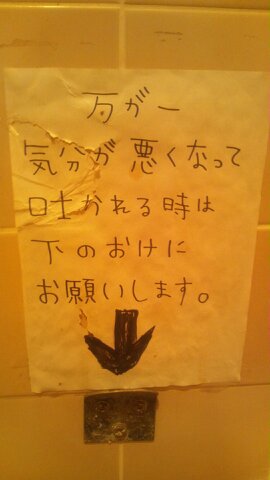 万が一
気分が悪くなって
吐かれる時は
下のおけに
お願いします。